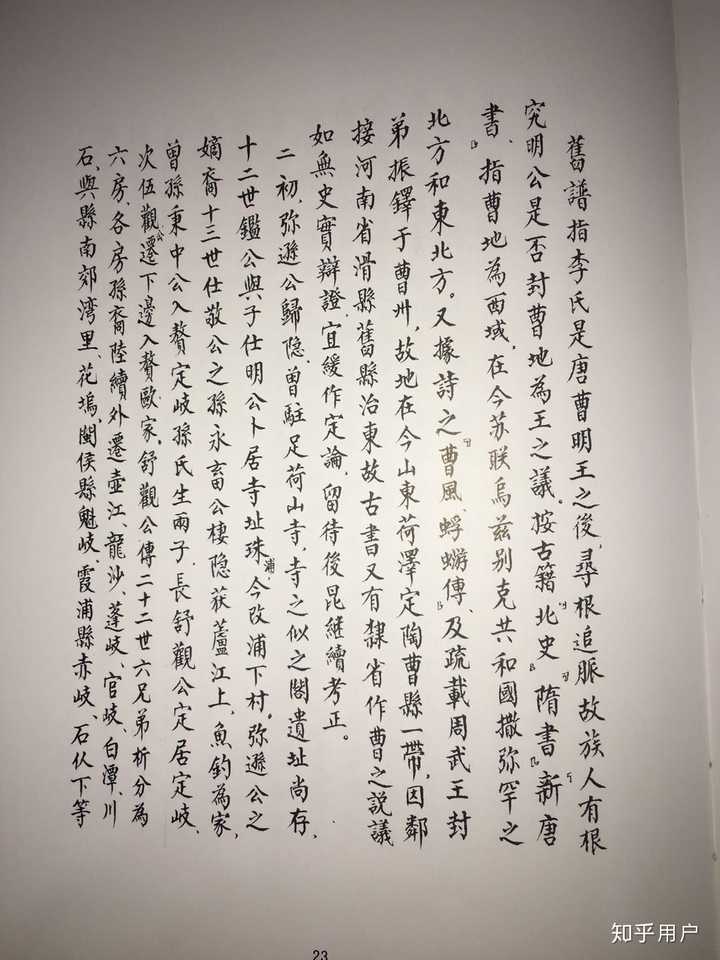 舊譜指李氏是唐曹明王之後，尋根追脈故族人有根
究明公是否封曹地為王之議。按古籍北史隋書新唐
書、指曹地為西域，在今苏联烏兹别克共和國撒弥罕之
北方和東北方。又據詩之曹風、蜉蝣傳、及疏載周武王封
弟振鐸于曹州，故地在今山東荷澤定陶曹縣一帶，因鄰
接河南省滑縣舊縣治東故古書又有隸省作曹之説議
如無史實辯證宜緩作定論，留待後昆继續考正。
二初，弥遜公歸隐，曾駐足荷山寺，寺之似之閣遺址尚存，
十二世鑑公與子仕明公卜居寺址珠浦，今改浦下村。弥遜公之
嫡裔十三世仕敬公之孫永畜公棲隐荻蘆江上，魚釣為家，
曾孫秉中公入贅定岐孫氏生兩子，長舒觀公定居定岐，
次伍觀公遷下邊入贅歐家。舒觀公傳二十二世六兄弟析分為
六房、各房孫裔陸續外遷壺江、龍沙、蓬岐、官岐、白潭、川
石、與縣南郊湾里、花塢、閩侯縣魁岐、霞浦縣赤岐、石仏下等
23
知乎用户